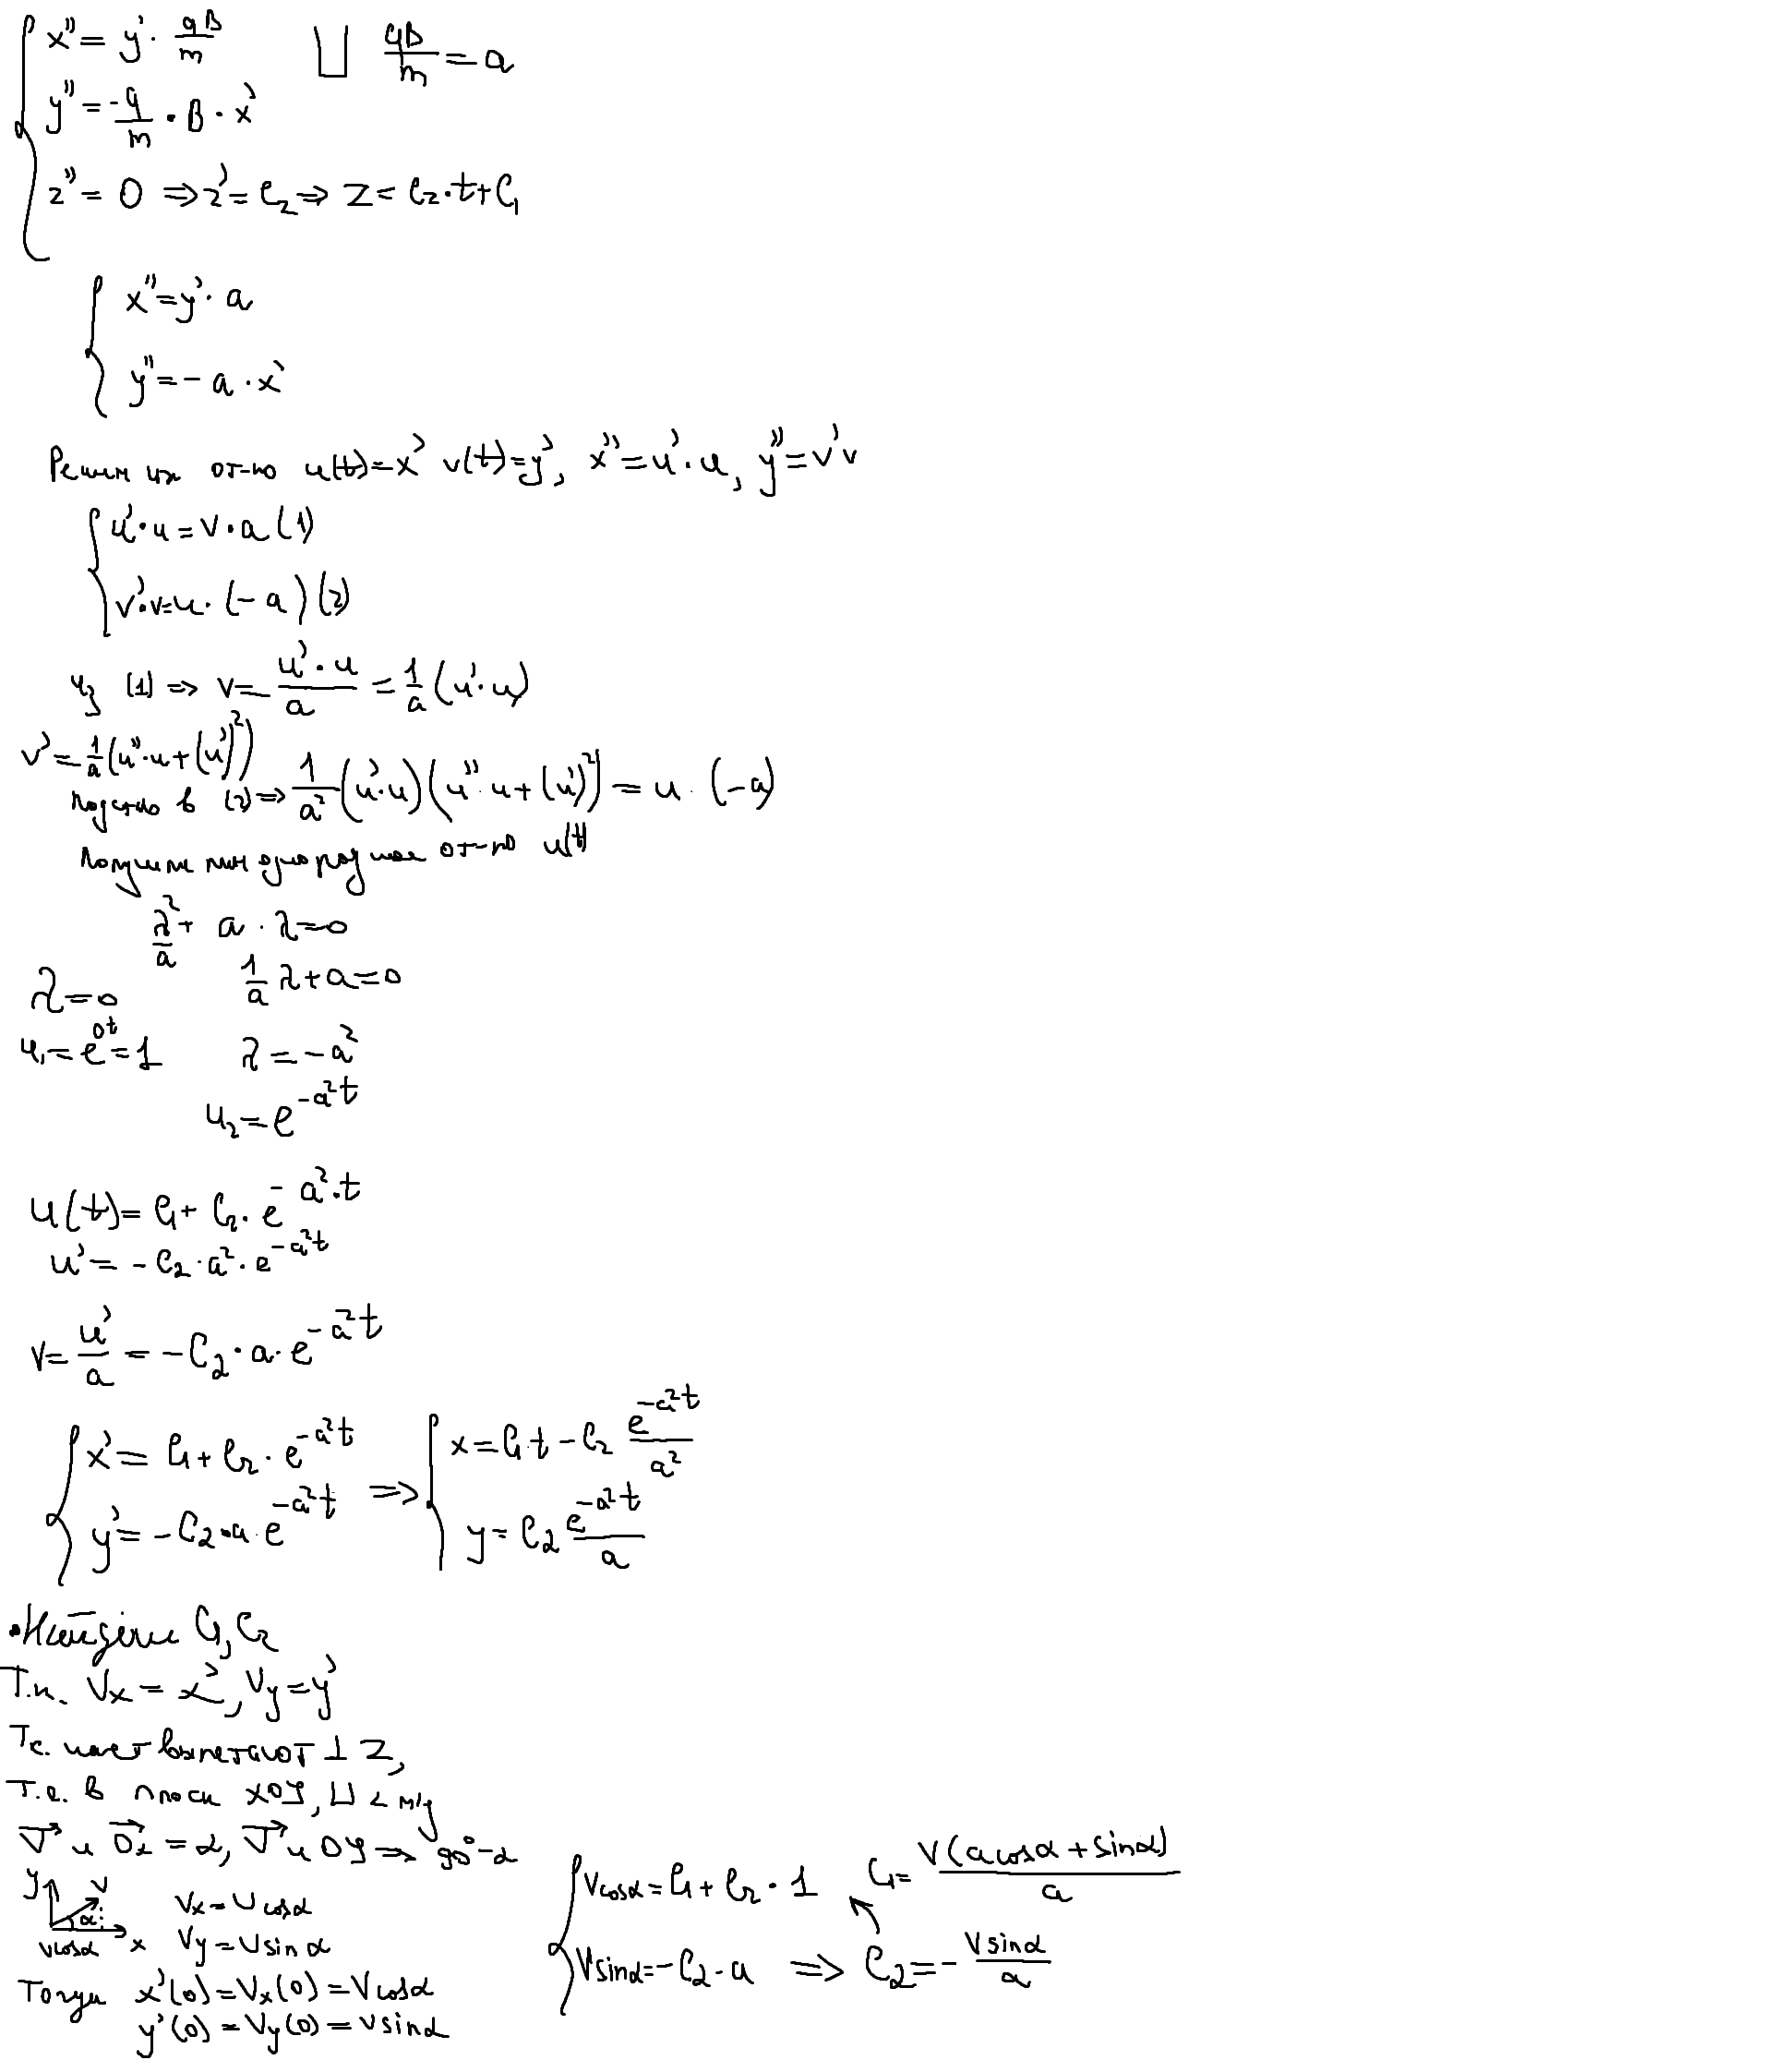 x'' = y' · qB/m   ⊔ qB/m = a
y'' = -q/m · B · x'
z'' = 0 ⇒ z' = C₂ ⇒ z = C₂·t + C₁
x'' = y' · a
y'' = - a · x'
Решим их от-но u(t) = x' v(t) = y', x'' = u'·u, y'' = v'v
u'·u = v·a (1)
v'·v = u·(-a) (2)
из (1) ⇒ v = u'·u/a = 1/a (u'·u)
v' = 1/a (u''·u + (u')²)
подст-ю в (2) ⇒ 1/a² (u'·u)(u''·u + (u')²) = u · (-a)
Получим лин однородное от-но u(t)
λ²/a + a · λ = 0
λ = 0   1/a λ + a = 0
u₁ = e^0t = 1   λ = -a²
u₂ = e^-a²t
u(t) = C₁ + C₂ · e^-a²·t
u' = - C₂ · a² · e^-a²t
v = u'/a = - C₂ · a · e^-a²t
x' = C₁ + C₂ · e^-a²t ⇒ x = C₁t - C₂ e^-a²t/a²
y' = - C₂·a·e^-a²t   y = C₂ e^-a²t/a
•Найдём C₁, C₂
Т.к. Vx = x', Vy = y'
Т.к. част вылетают ⊥ z,
т.е. в плоск xOy, ⊔ ∠ м/у
V и Ox = α, V и Oy ⇒ 90°-α
y v α vcosα x
Vx = V cosα
Vy = V sinα
Тогда x'(0) = Vx(0) = V cosα
y'(0) = Vy(0) = v sinα
Vcosα = C₁ + C₂ · 1   C₁ = V(a cosα + sinα)/a
Vsinα = - C₂·a ⇒ C₂ = - V sinα/a